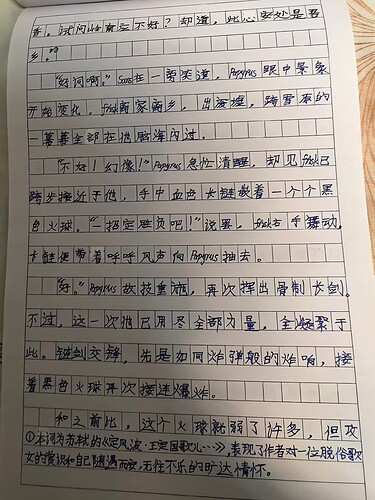 香。试问岭南应不好？却道，此心安处是吾
乡。"①
"好词啊。"Sans在一旁笑道，Papyrus眼中景象
开始变化。frisk离家离乡，出海狸，踏雪木的
一幕幕全部在他脑海闪过。
"不好！幻像！"Papyrus急忙清醒，却见frisk已
踏步接近于他，手中血色长链嵌着一个个黑
色火球。"一招定胜负吧！"说罢，frisk右手舞动，
长链便带着呼呼风声向Papyrus抽去。
"好。"Papyrus故技重施，再次挥出骨制长剑。
不过，这一次他已用尽全部力量，全凝聚于
此。链剑交锋，先是如同炸弹般的炸响，接
着黑色火球再次接连爆炸。
和之前比，这个火球就弱了许多，但攻
①本词为苏轼的《定风波·王定国歌儿……》，表现了作者对一位脱俗歌
女的赏识和自己随遇而安，无往不乐的旷达情怀。